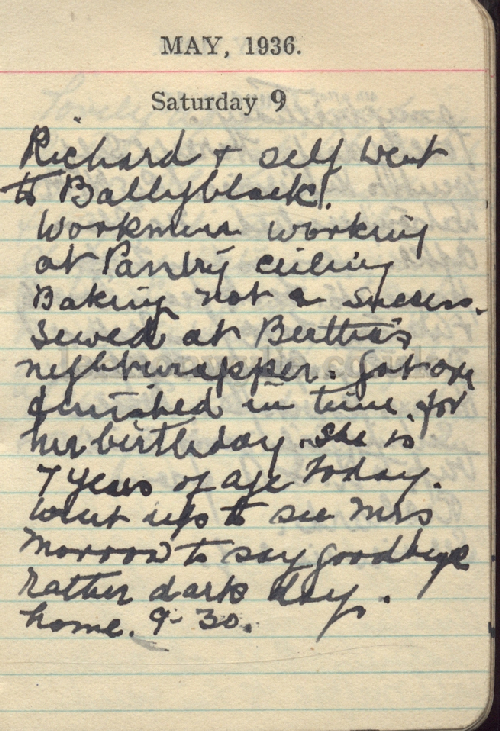 MAY, 1936.
Saturday 9
Richard + self went
to Ballyblack.
Workmen working
at Pantry ceiling
Baking not a success.
Sewed at Bertha's
nightwrapper. Got one
finished in time for
her birthday. She is
7 years of age today.
Went up to see Mrs
Morrow to say goodbye
rather dark day.
home. 9-30.